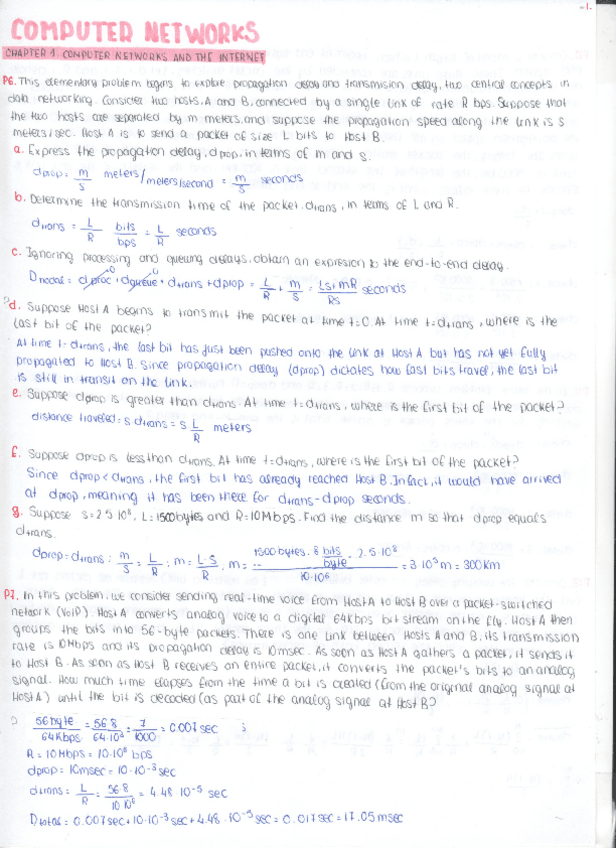 -1-
COMPUTER NETWORKS
CHAPTER 1. COMPUTER NETWORKS AND THE INTERNET
P6. This elementary problem begins to explore propagation delay and transmision delay, two central concepts in
data networking. Consider two hosts, A and B, connected by a single link of rate R bps. Suppose that
the two hosts are separated by m meters, and suppose the propagation speed along the link is s
meters/sec. Host A is to send a packet of size L bits to Host B.
a. Express the propagation delay, dprop, in terms of m and s.
dprop = m/s meters/meters/second = m/s seconds
b. Determine the transmission time of the packet, dtrans, in terms of L and R.
dtrans = L/R bits/bps = L/R seconds
c. Ignoring processing and queuing delays, obtain an expresion to the end-to-end delay.
Dnodal = dproc + dqueue + dtrans + dprop = L/R + m/s = Ls+mR/Rs seconds
?d. Suppose Host A begins to transmit the packet at time t=0. At time t=dtrans, where is the
last bit of the packet?
At time t=dtrans, the last bit has just been pushed onto the link at Host A but has not yet fully
propagated to Host B. Since propagation delay (dprop) dictates how fast bits travel, the last bit
is still in transit on the link.
e. Suppose dprop is greater than dtrans. At time t=dtrans, where is the first bit of the packet?
distance traveled = s dtrans = s L/R meters
f. Suppose dprop is less than dtrans. At time t=dtrans, where is the first bit of the packet?
Since dprop < dtrans, the first bit has already reached Host B. In fact, it would have arrived
at dprop, meaning it has been there for dtrans-dprop seconds.
g. Suppose s=2.5·10⁸, L=1500bytes and R=10Mbps. Find the distance m so that dprop equals
dtrans.
dprop = dtrans ; m/s = L/R ; m = L·s/R , m = 1500bytes · 8 bits/byte · 2.5·10⁸ / 10·10⁶ = 3·10⁵m = 300KM
P7. In this problem, we consider sending real-time voice from Host A to Host B over a packet-switched
network (VoIP). Host A converts analog voice to a digital 64kbps bit stream on the fly. Host A then
groups the bits into 56-byte packets. There is one link between Hosts A and B, its transmission
rate is 10Mbps and its propagation delay is 10msec. As soon as Host A gathers a packet, it sends it
to Host B. As soon as Host B receives an entire packet, it converts the packet's bits to an analog
signal. How much time elapses from the time a bit is created (from the original analog signal at
Host A) until the bit is decoded (as part of the analog signal at Host B)?
56byte/64Kbps = 56·8/64·10³ = 7/1000 = 0.007 sec
R = 10Mbps = 10·10⁶ bps
dprop = 10msec = 10·10⁻³ sec
dtrans = L/R = 56·8/10·10⁶ = 4.48·10⁻⁵ sec
Dtotal = 0.007sec + 10·10⁻³ sec + 4.48·10⁻⁵ sec = 0.017sec = 17.05 msec